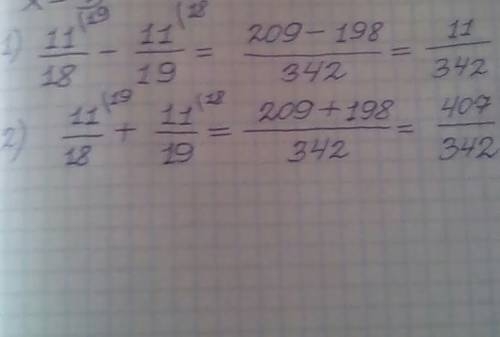 1) 11/18 (19 - 11/19 (18 = 209 - 198/342 = 11/342
2) 11/18 (19 + 11/19 (18 = 209 + 198/342 = 407/342